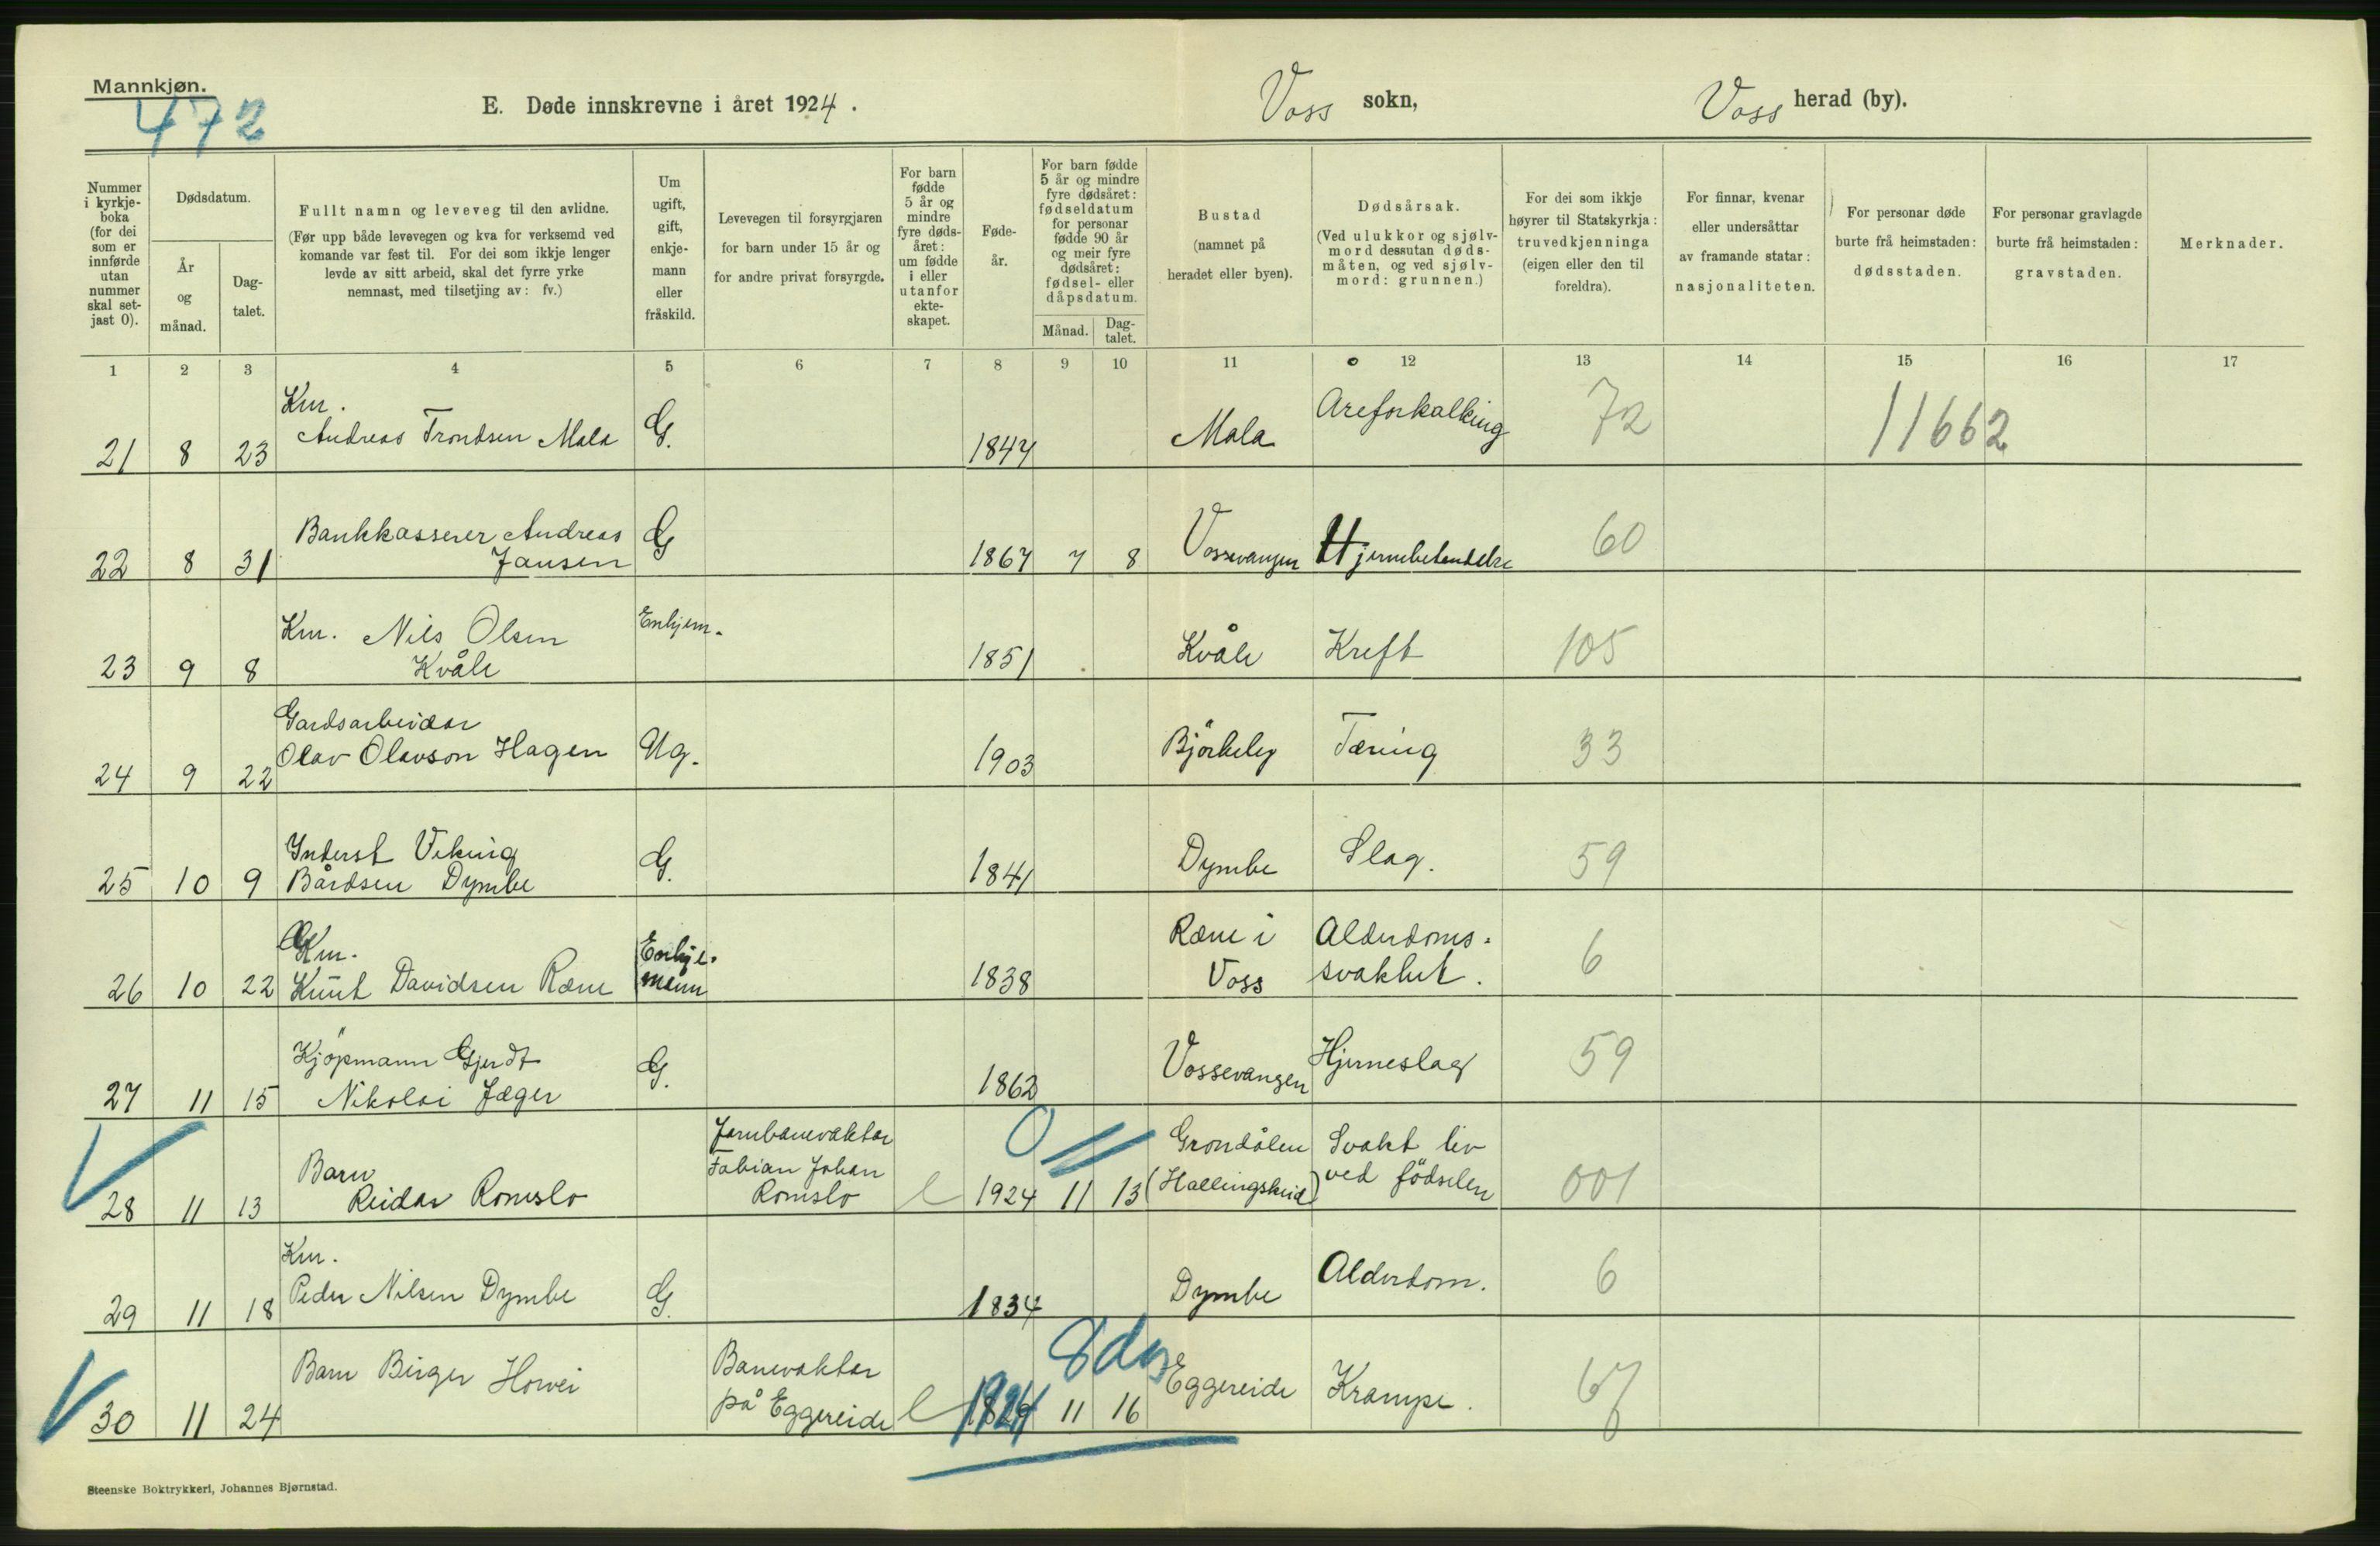 Mannkjøn.
472
E. Døde innskrevne i året 1924.
Voss sokn,
Voss herad (by).
Nummer i kyrkje-boka (for dei som er innførde utan nummer skal set-jast 0).
Dødsdatum.
År og månad.
Dag-talet.
Fullt namn og leveveg til den avlidne.
(Før upp både levevegen og kva for verksemd ved komande var fest til. For dei som ikkje lenger levde av sitt arbeid, skal det fyrre yrke nemnast, med tilsetjing av: fv.)
Um ugift, gift, enkje-mann eller fråskild.
Levevegen til forsyrgjaren for barn under 15 år og for andre privat forsyrgde.
For barn fødde 5 år og mindre fyre døds-året: um fødde i eller utanfor ekte-skapet.
Føde-år.
For barn fødde 5 år og mindre fyre dødsåret: fødseldatum for personar fødde 90 år og meir fyre dødsåret: fødsel- eller dåpsdatum.
Månad.
Dag-talet.
Bustad (namnet på heradet eller byen).
Dødsårsak.
(Ved ulukkor og sjølv-mord dessutan døds-måten, og ved sjølv-mord: grunnen.)
For dei som ikkje høyrer til Statskyrkja: truvedkjenninga (eigen eller den til foreldra).
For finnar, kvenar eller undersåttar av framande statar: nasjonaliteten.
For personar døde burte frå heimstaden: dødsstaden.
For personar gravlagde burte frå heimstaden: gravstaden.
Merknader.
1 2 3 4 5 6 7 8 9 10 11 12 13 14 15 16 17
21 8 23 Km. Andreas Trondsen Mala G. 1847 Mala Areforkalking 72 11662
22 8 31 Bankkasserer Andreas Jansen G 1867 7 8 Vossevangen Hjernebetendelse 60
23 9 8 Km. Nils Olsen Kvåle Enkjem. 1851 Kvåle Kreft 105
24 9 22 Gardsarbeidar Olav Olavson Hagen Ug. 1903 Björkely Tæring 33
25 10 9 Inderst Viking Bårdsen Dymbe G. 1841 Dymbe Slag. 59
26 10 22 Km. Knut Davidsen Ræne Enkje-mann 1838 Ræne i Voss Alderdoms-svakhet. 6
27 11 15 Kjöpmann Gjerdt Nikolai Jæger G. 1862 Vossevangen Hjerneslag 59
28 11 13 Barn Reidar Romslo Jarnbanevaktar Fabian Johan Romslo 1924 11 13 Grondålen (Hallingskeid) Svakt liv ved födselen 001
29 11 18 Km. Peder Nilsen Dymbe G. 1834 Dymbe Alderdom. 6
30 11 24 Barn Birger Horvei Banevaktar på Eggereide 1924 11 16 8 da Eggereide Krampe. 67
Steenske Boktrykkeri, Johannes Bjørnstad.